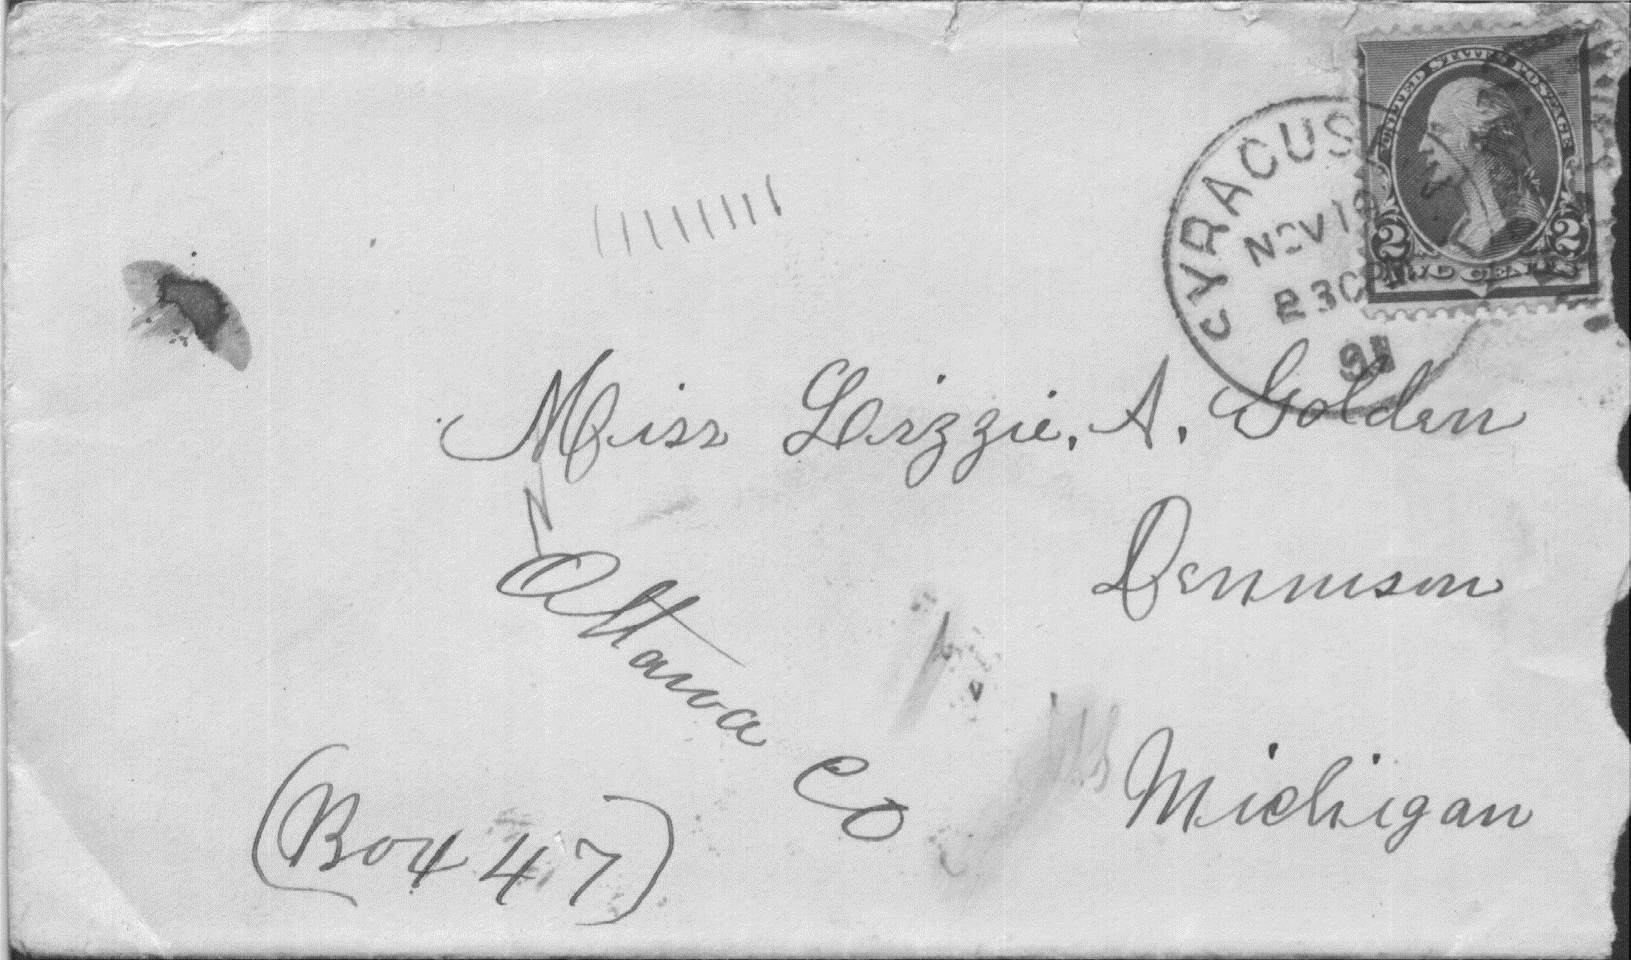 UNITED STATES POSTAGE
2 2
TWO CENTS
SYRACUS
NOV 19
230
91
Miss Lizzie, A. Golden
Dennison
Ottawa Co
Michigan
(Box 47)